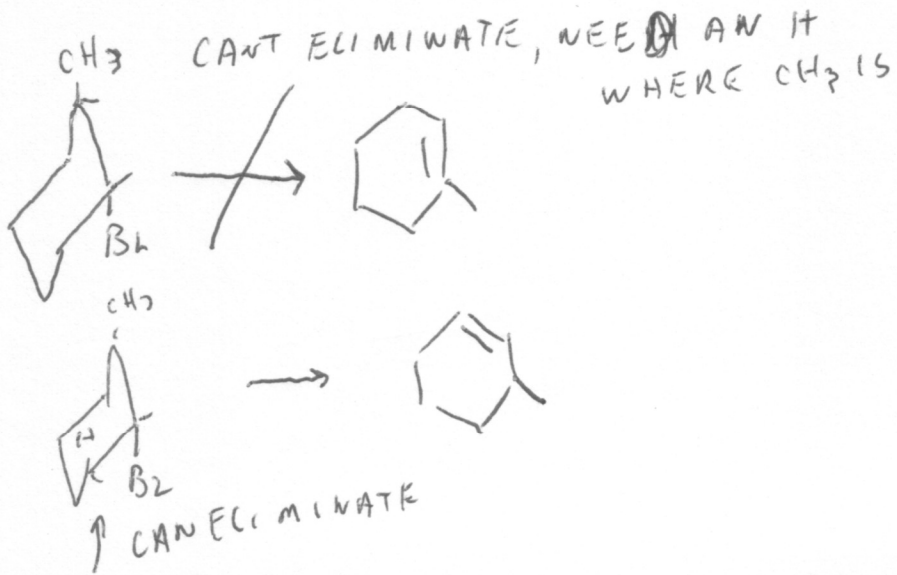 CH3
CANT ELIMINATE, NEED AN H
WHERE CH3 IS
Br
CH3
H
Br
CAN ELIMINATE